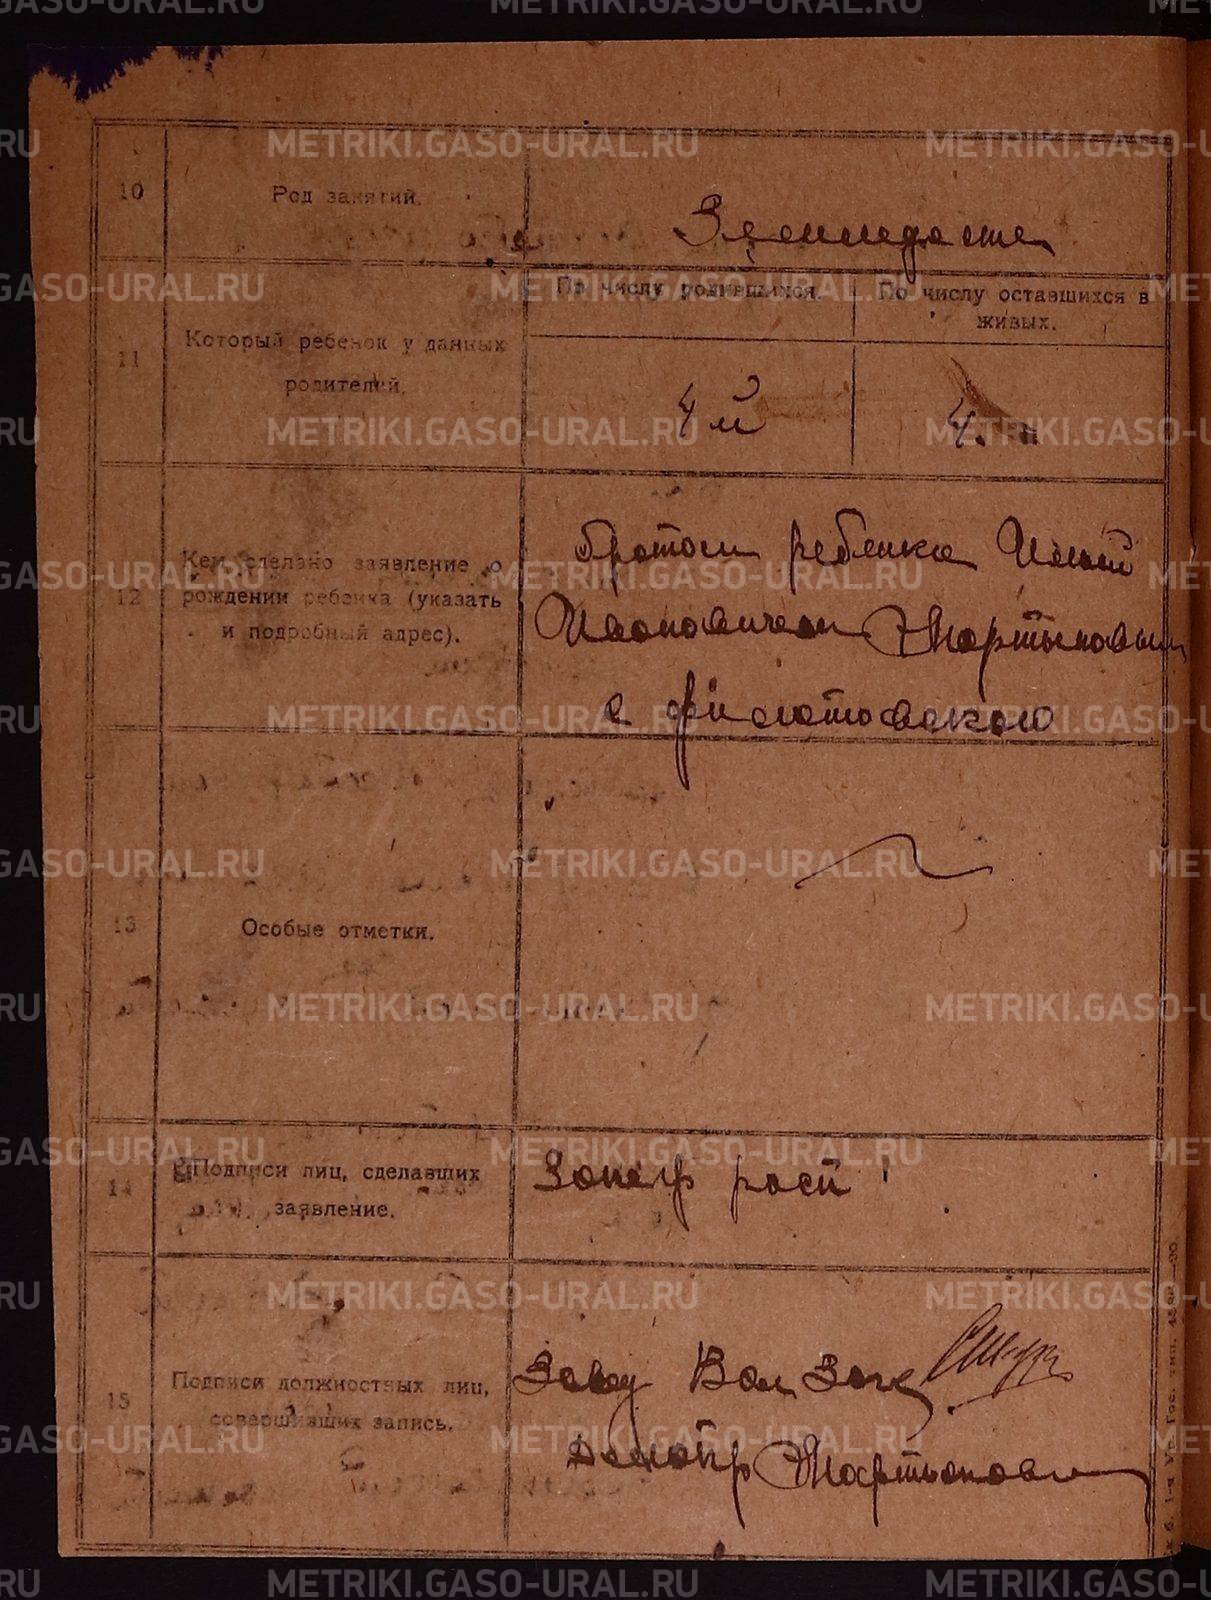 METRIKI.GASO-URAL.RU
10
Род занятий.
Земледелие
11
Который ребенок у данных
родителей.
По числу родившихся.
По числу оставшихся в
живых.
4й
4.
12
Кем сделано заявление о
рождении ребенка (указать
и подробный адрес).
братом ребенка
Мартыновым
с
13
Особые отметки.
14
Подписи лиц, сделавших
заявление.
15
Подписи должностных лиц,
совершивших запись.
Завед
Делопр Мартынов